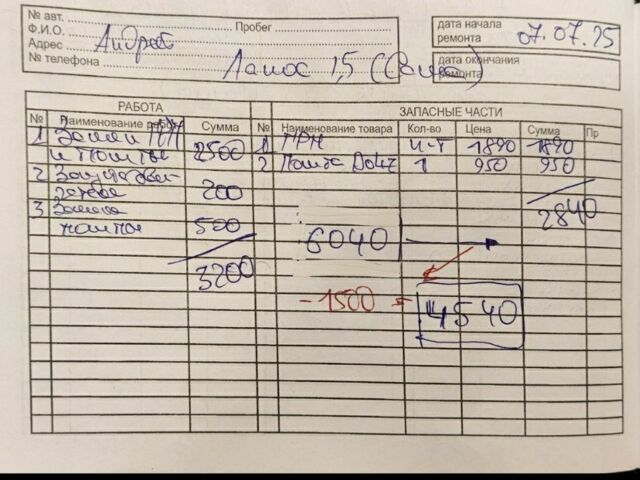 № авт. Пробег
Ф.И.О. Андрей
Адрес
№ телефона Ланос 1,5
дата начала
ремонта 07.07.25
дата окончания
ремонта
РАБОТА ЗАПАСНЫЕ ЧАСТИ
№ Наименование Сумма № Наименование товара Кол-во Цена Сумма Пр
1 Замена ГРМ 1 ГРМ к-т 1890 1890
и помпы 2500 2 Помпа Dolz 1 950 950
2
200 2840
3 Замена
500 6040
3200
-1500 = 4540